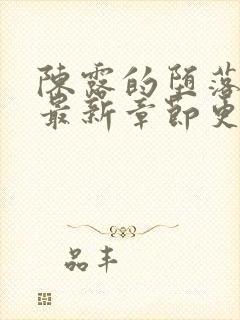 陳露的堕落
最新章節更
品丰